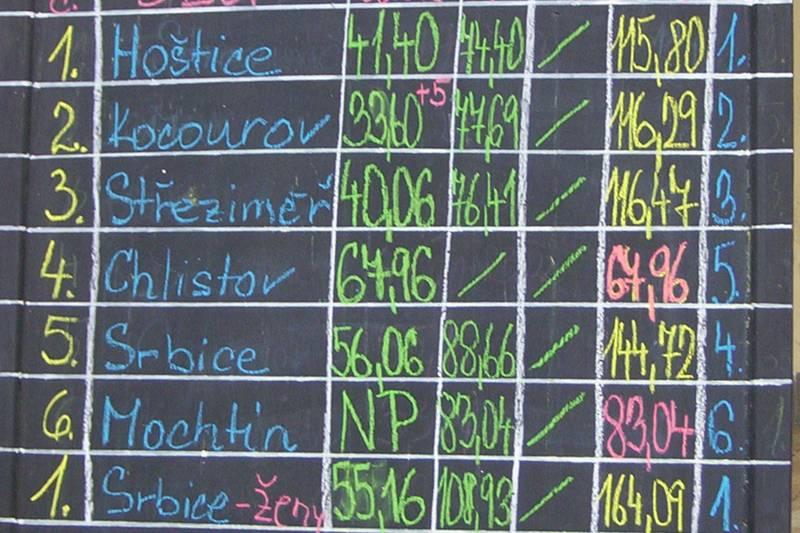 1. Hoštice 41,40 74,40 / 115,80 1.
2. Kocourov 33,60 +5 77,69 / 116,29 2.
3. Střeziměř 40,06 76,41 / 116,47 3.
4. Chlistov 67,96 / / 67,96 5.
5. Srbice 56,06 88,66 / 144,72 4.
6. Mochtín NP 83,04 / 83,04 6.
1. Srbice - ženy 55,16 108,93 / 164,09 1.